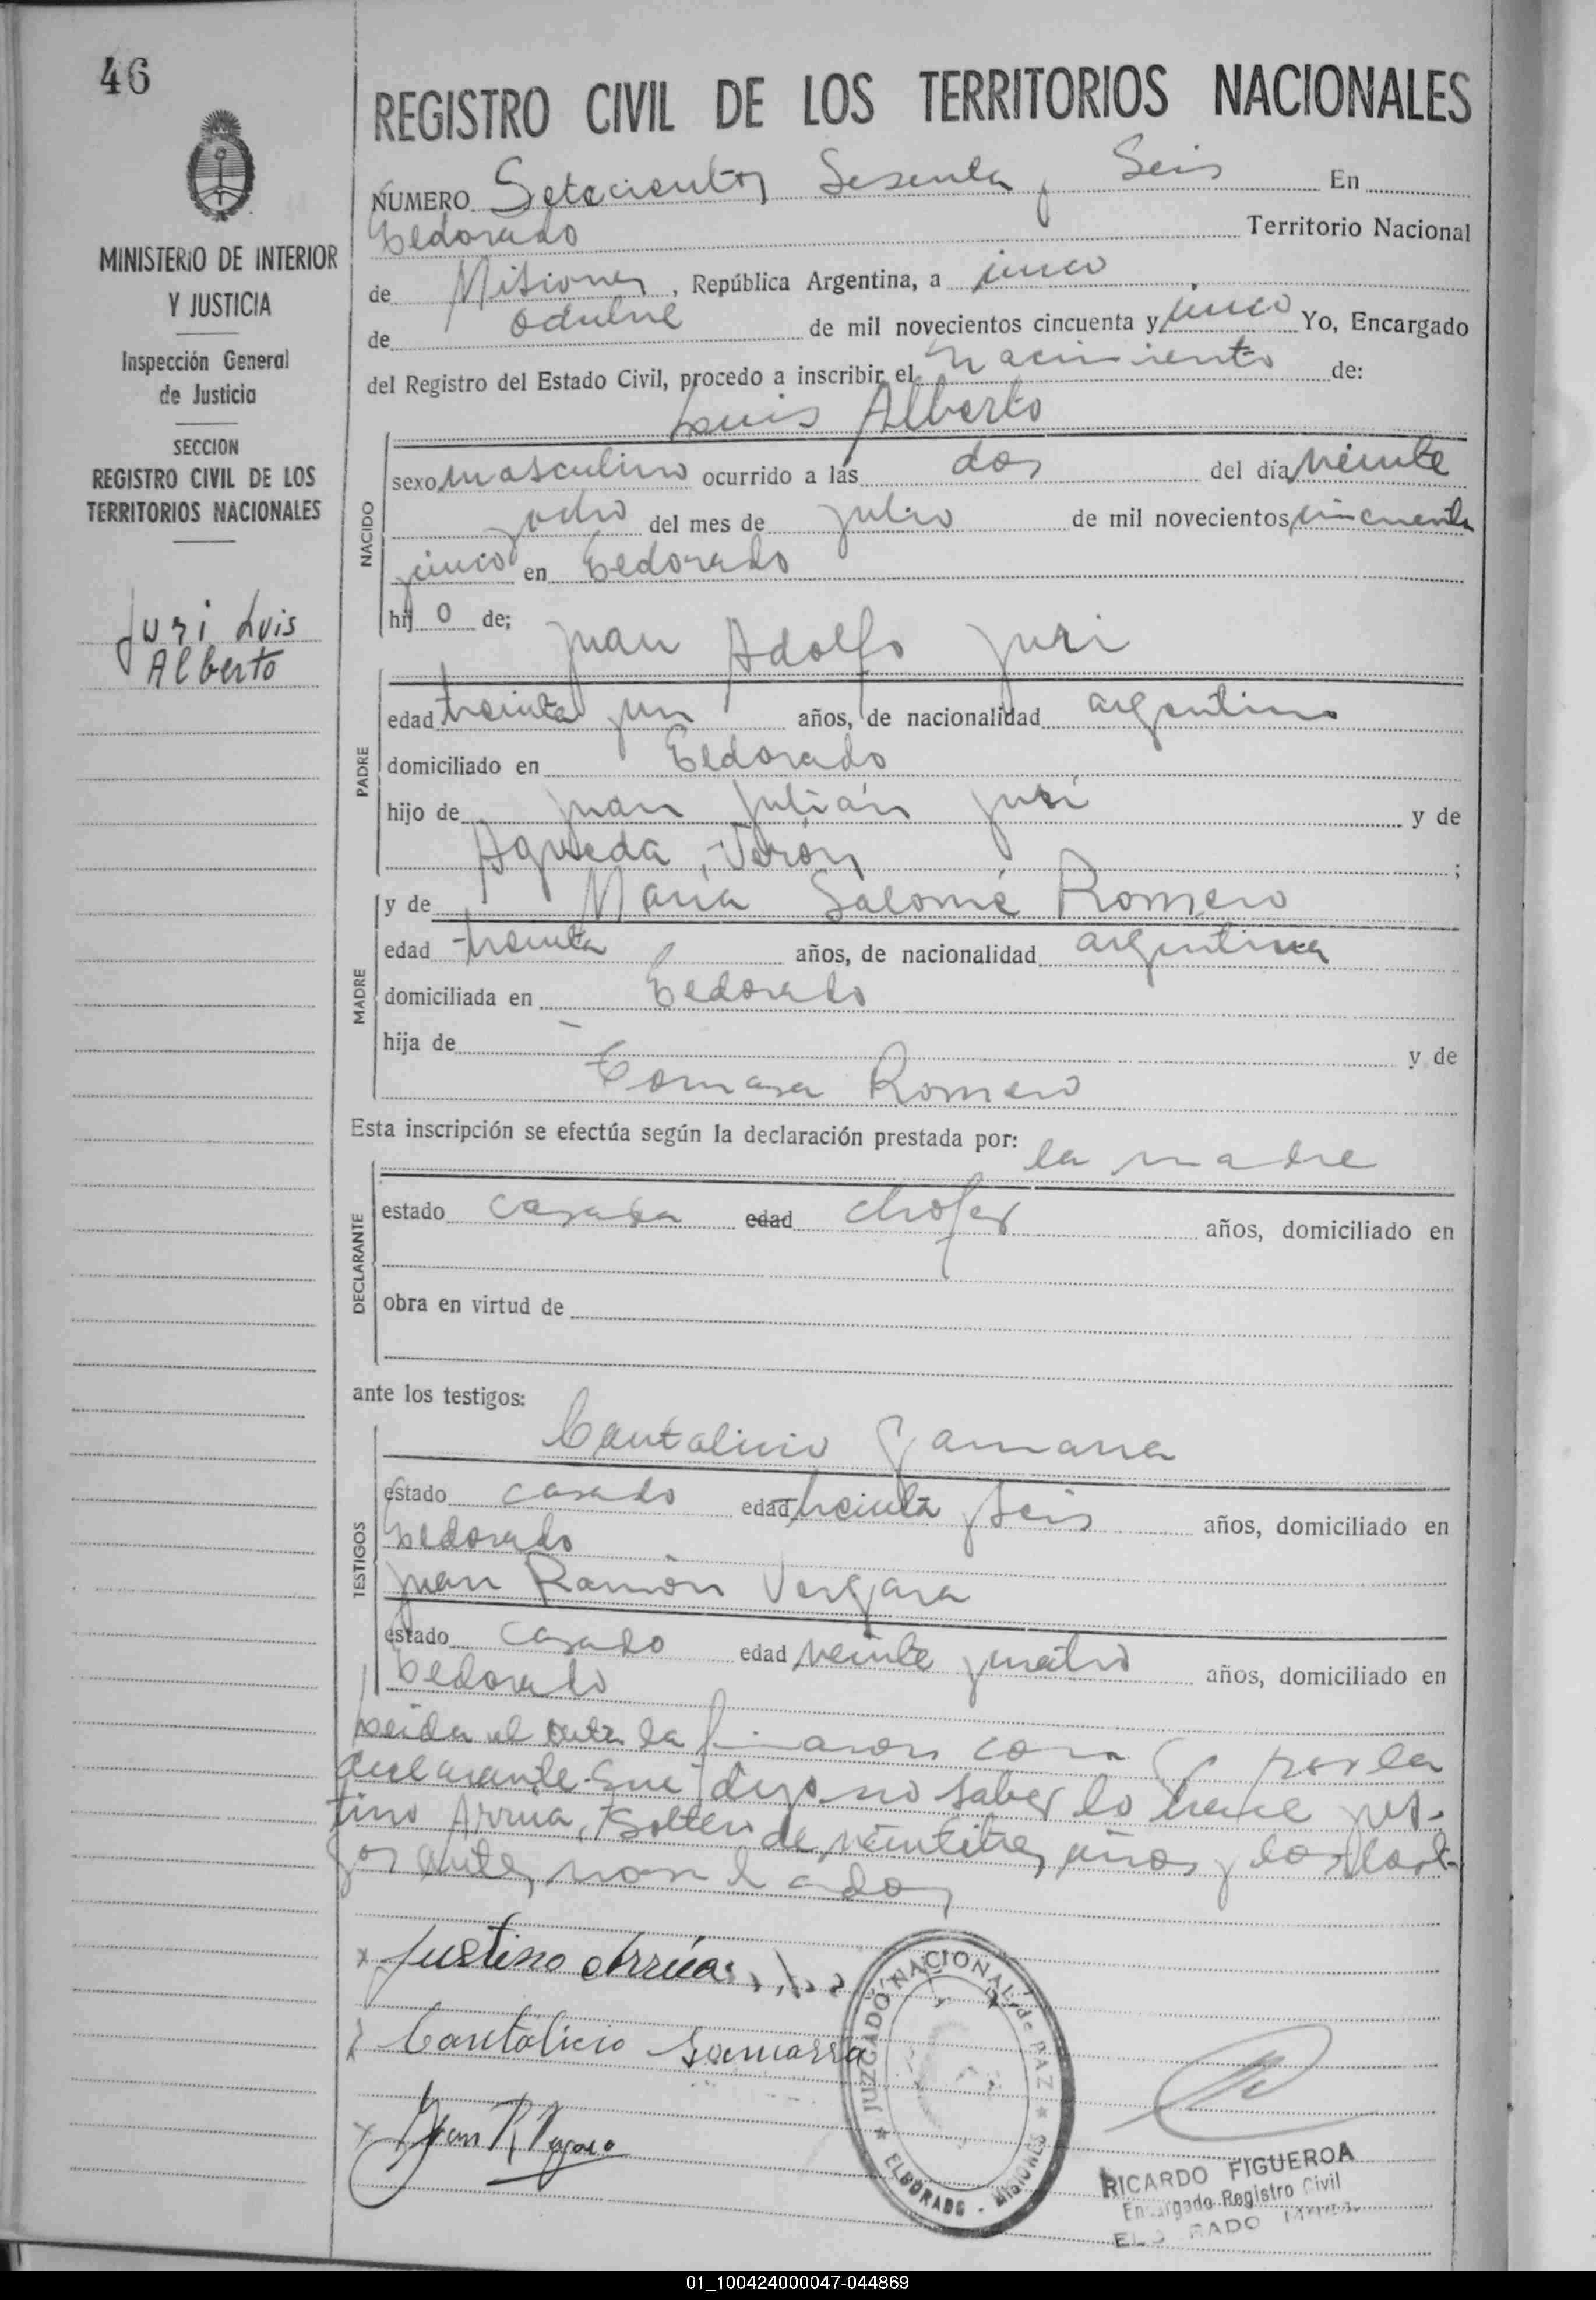 46
REGISTRO CIVIL DE LOS TERRITORIOS NACIONALES
NUMERO Setecientos Sesenta y Seis En
Eldorado Territorio Nacional
de Misiones, República Argentina, a cinco
de octubre de mil novecientos cincuenta y cinco Yo, Encargado
del Registro del Estado Civil, procedo a inscribir el nacimiento de:
Luis Alberto
MINISTERIO DE INTERIOR
Y JUSTICIA
Inspección General
de Justicia
SECCION
REGISTRO CIVIL DE LOS
TERRITORIOS NACIONALES
Juri Luis
Alberto
NACIDO
sexo masculino ocurrido a las dos del día veinte
yocho del mes de julio de mil novecientos cincuenta
ycinco en Eldorado
hij o de;
Juan Adolfo Juri
PADRE
edad treinta yun años, de nacionalidad argentino
domiciliado en Eldorado
hijo de Juan Julián Juri y de
Agueda Verón ;
MADRE
y de María Salomé Romero
edad treinta años, de nacionalidad argentina
domiciliada en Eldorado
hija de — y de
Tomasa Romero
Esta inscripción se efectúa según la declaración prestada por:
la madre
DECLARANTE
estado casada edad chofer años, domiciliado en
obra en virtud de
ante los testigos:
TESTIGOS
Cantalicio Gamarra
estado casado edad treinta yseis años, domiciliado en
Eldorado
Juan Ramón Vergara
estado casado edad veinte ycuatro años, domiciliado en
Eldorado
Leida el acta la firmaron con por la
declarante que dijo no saber lo hace Jus-
tino Arrúa, soltero de veintitres años y los testi-
gos antes nombrados
x Justino Arrúa
Cantalicio Gamarra
x Juan R Vergara
JUZGADO NACIONAL de PAZ
ELDORADO - MISIONES
RICARDO FIGUEROA
Encargado Registro Civil
ELDORADO
01_100424000047-044869